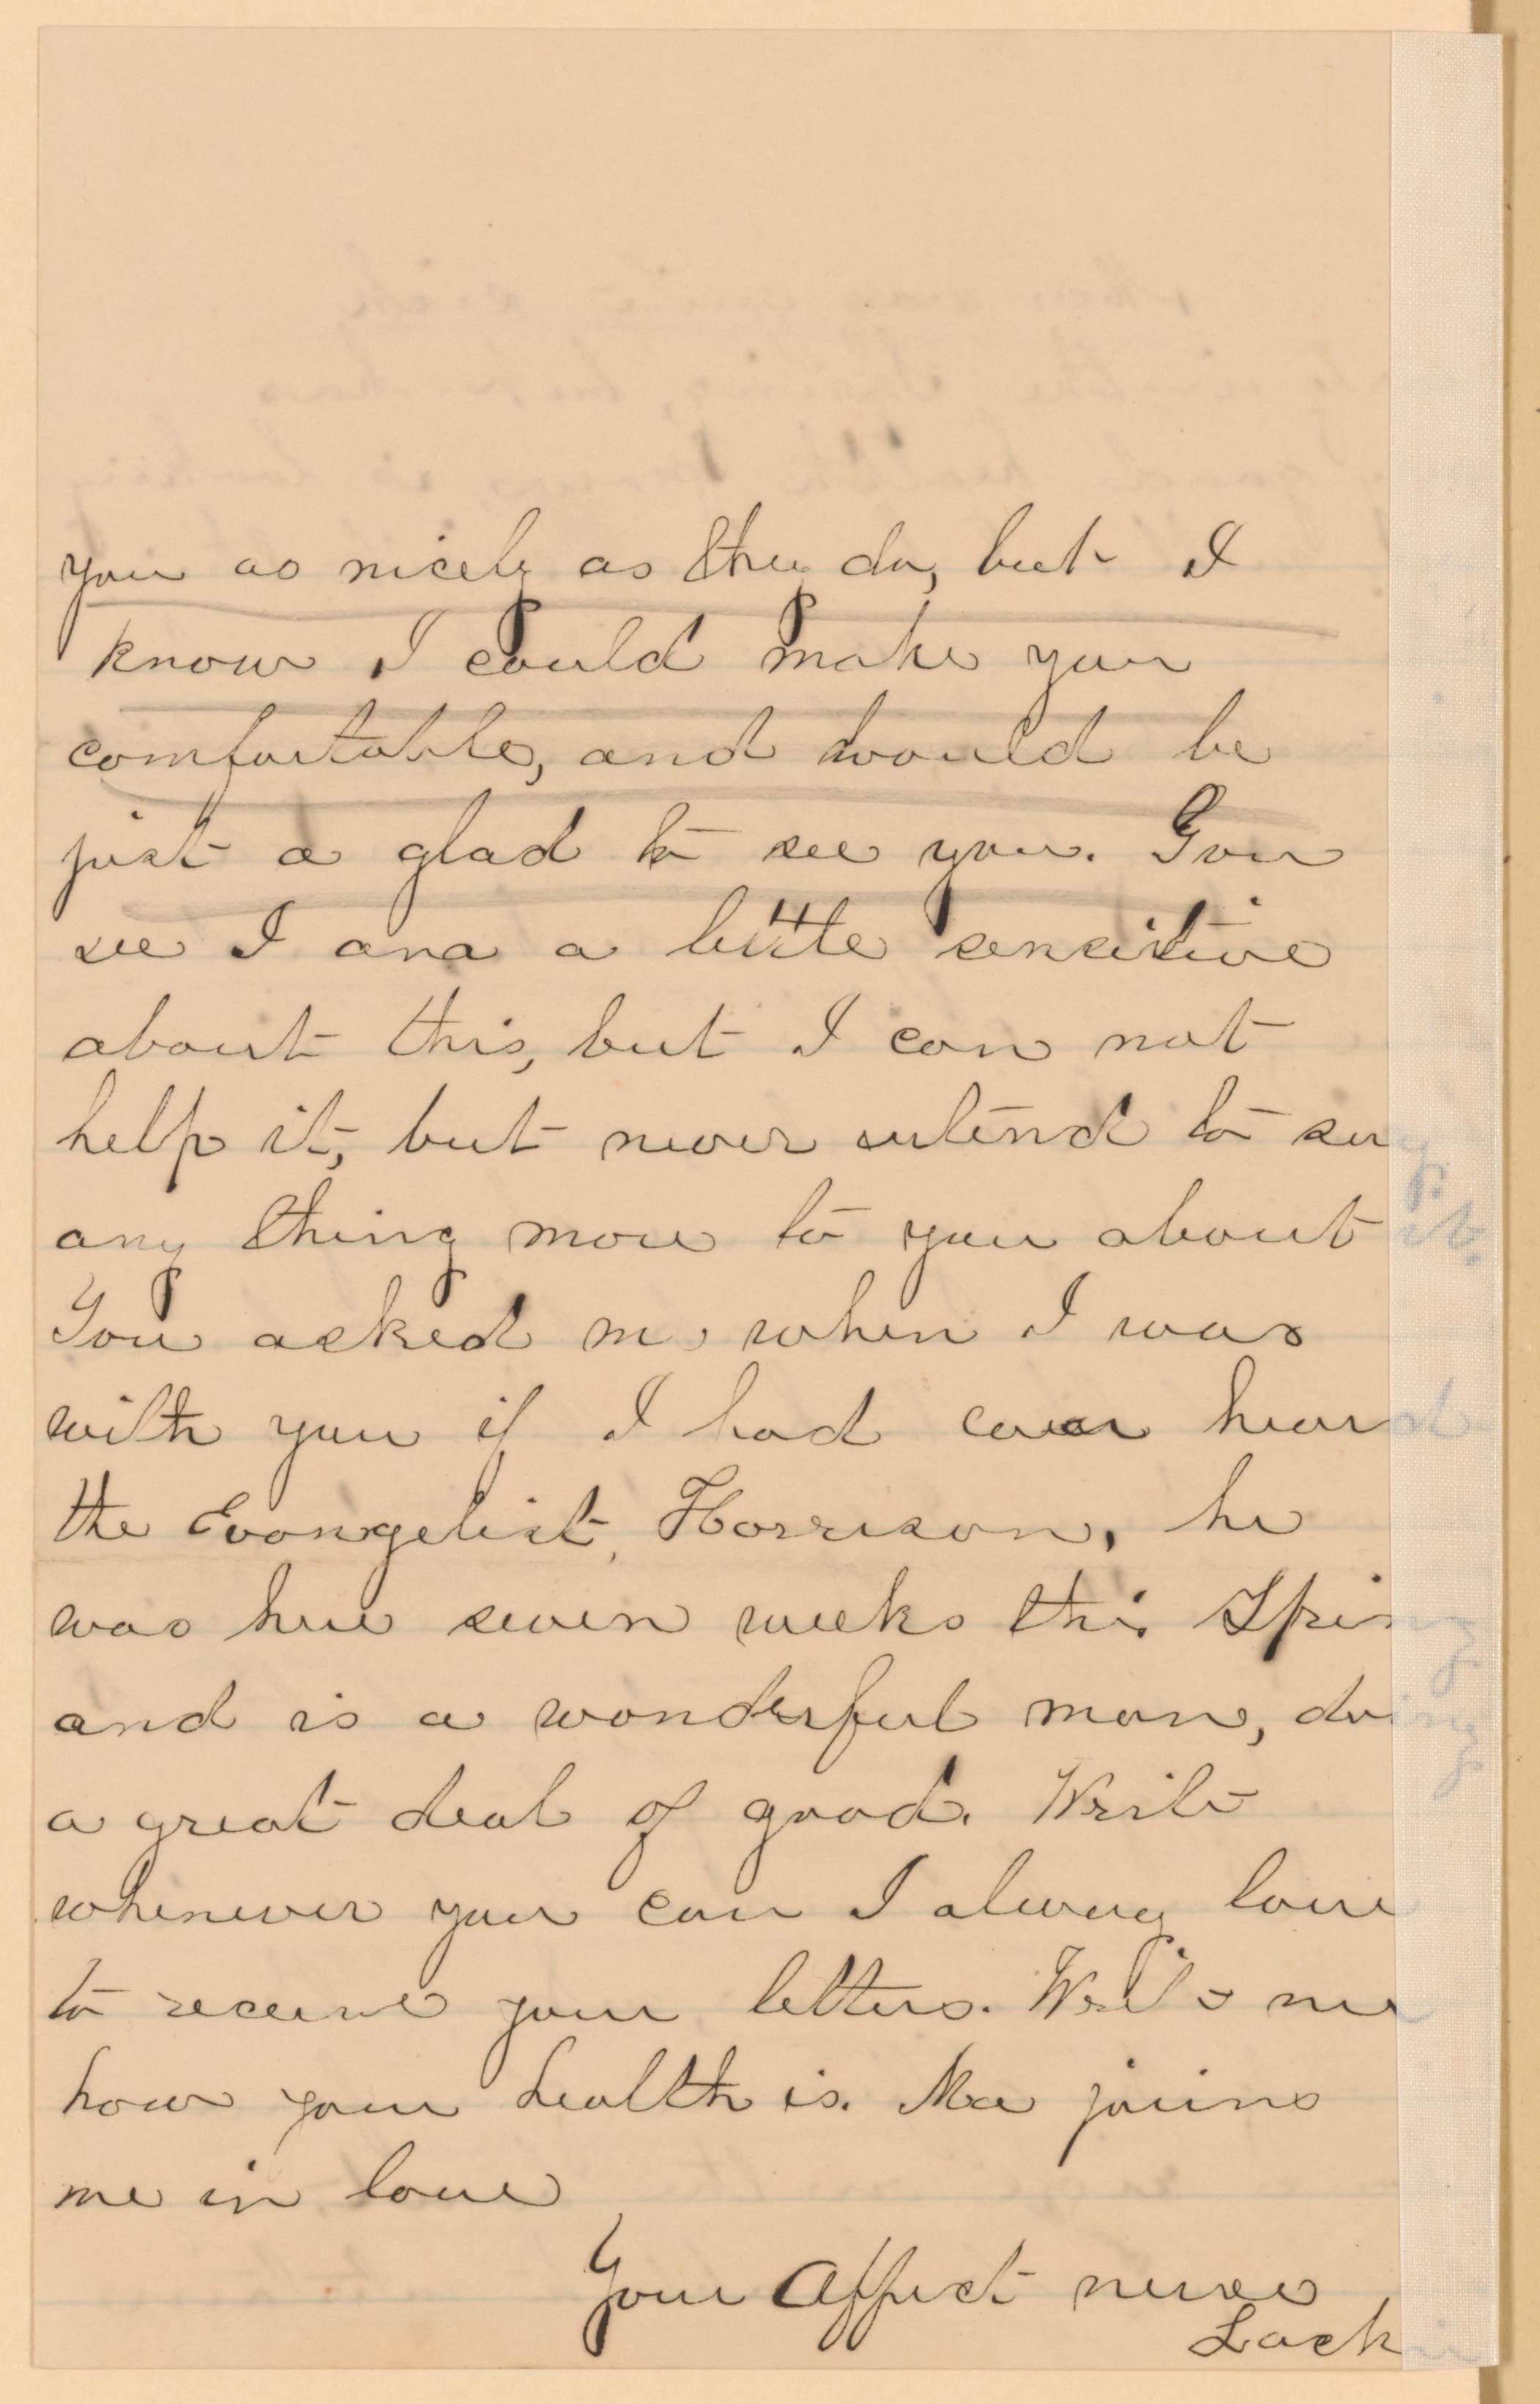 you as nicely as they do, but I
know I could make you
comfortable, and would be
just a glad to see you. You
see I am a little sensitive
about this, but I can not
help it, but never intend to say
any thing more to you about it.
You asked me when I was
with you if I had ever heard
the Evangelist, Harrison, he
was here seven weeks this Spring
and is a wonderful man, doing
a great deal of good. Write
whenever you can I always love
to receive your letters. Write me
how your health is. Ma joins
me in love
Your Affect niece